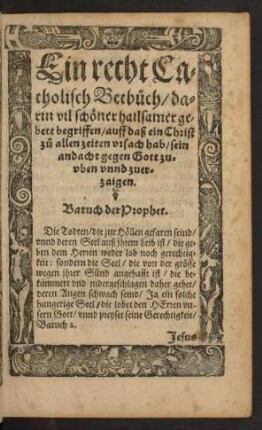 Ein recht Ca-
tholisch Betbůch/da-
rin vil schöner hailsamer ge-
bett begriffen/auff daß ein Christ
zů allen zeiten vrsach hab/sein
andacht gegen Gott zu-
vben vnnd zuer-
zaigen.
Baruch der Prophet.
Die Todten/die zur Höllen gefaren seind/
vnnd deren Seel auß jhrem leib ist/die ge-
ben dem Herren weder lob noch gerechtig-
keit: sondern die Seel/die von der grösse
wegen jhrer Sünd angehafft ist/die be-
kümmert vnd nidergeschlagen daher gehet/
deren Augen schwach seind/Ja ein solche
hungerige Seel/die lobet den HErren vn-
sern Gott/vnnd preyset seine Gerechtigkeit/
Baruch 2.
Jesus